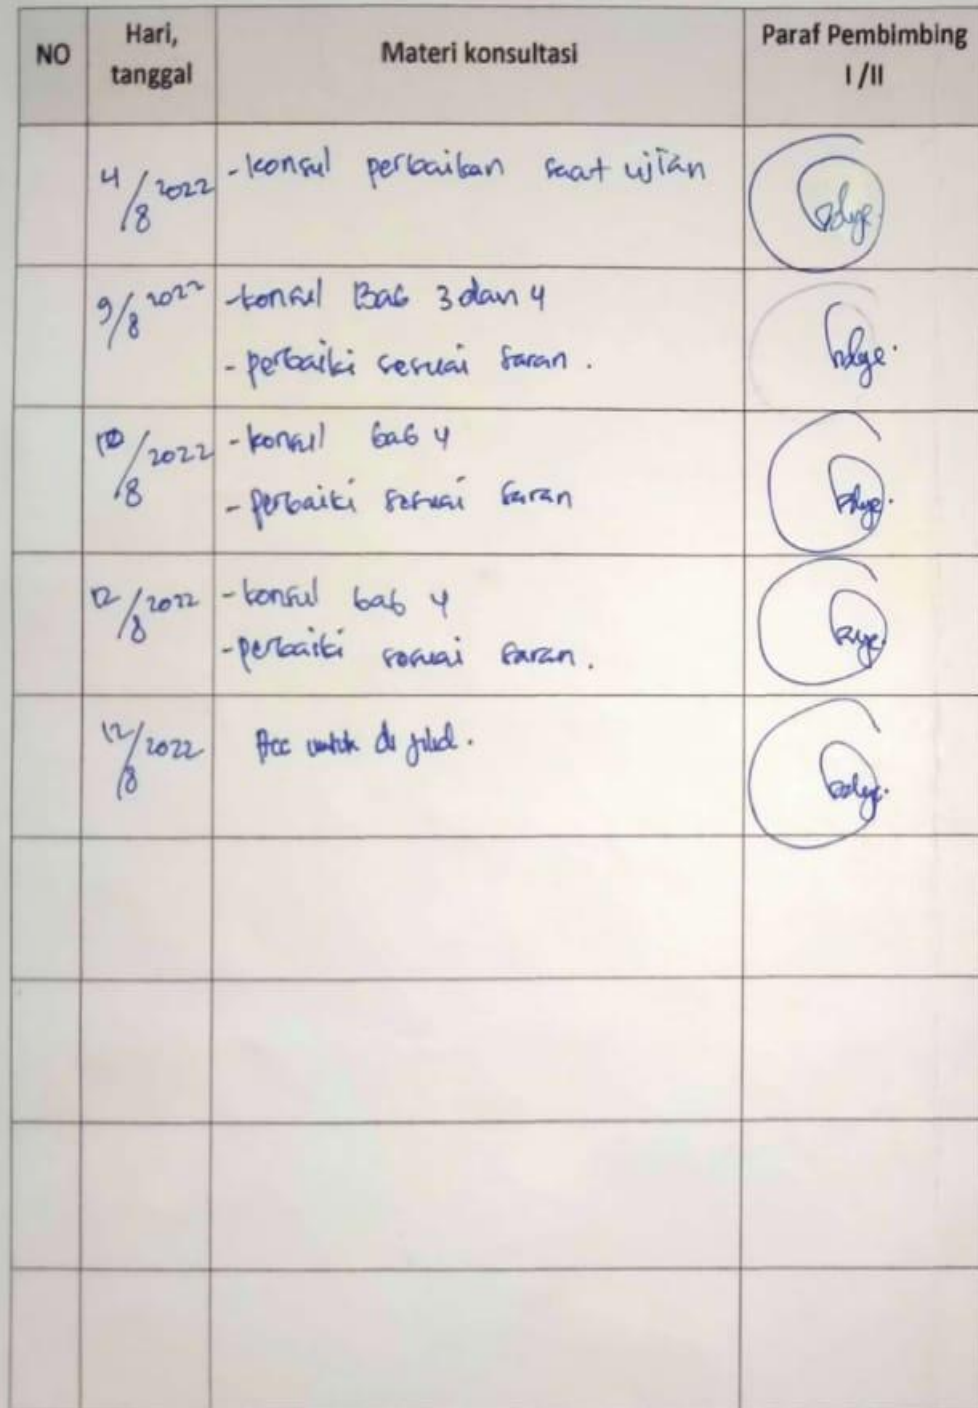 NO
Hari, tanggal
Materi konsultasi
Paraf Pembimbing I /II
4/8 2022
- konsul perbaikan saat ujian
9/8 2022
- konsul Bab 3 dan 4
- perbaiki sesuai saran.
10/8 2022
- konsul bab 4
- perbaiki sesuai saran
12/8 2022
- konsul bab 4
- perbaiki sesuai saran.
12/8 2022
Acc untuk di jilid.